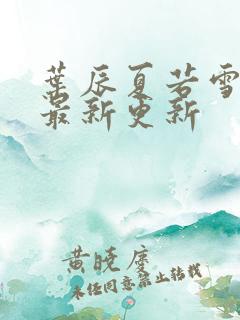 葉辰夏若雪
最新更新
黄晓度
未经同意禁止转载